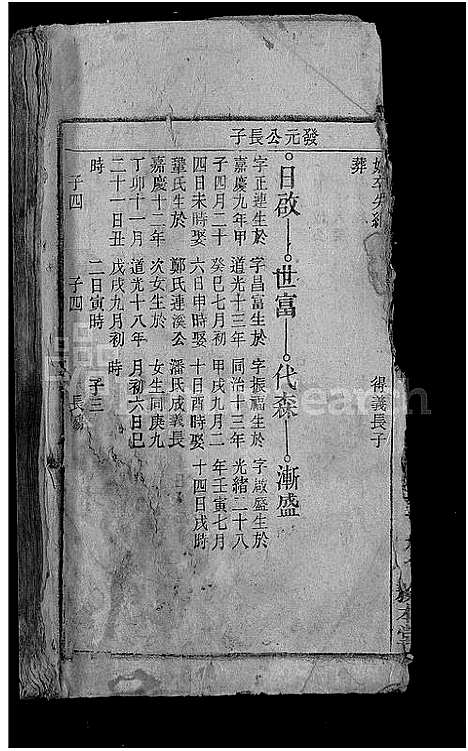 得義長子
葬
發元公長子
日啟 世富 代森 漸盛
字正連生於
嘉慶九年甲
子四月二十
四日未時娶
鞏氏生於
嘉慶十二年
丁卯十一月
二十一日丑
時
子四
字昌富生於
道光十三年
癸巳七月初
六日申時娶
鄭氏連溪公
次女生於
道光十八年
戊戌九月初
二日寅時
子四
字振福生於
同治十三年
甲戌九月二
十日酉時娶
潘氏成義長
女生同庚九
月初六日巳
時
子三
長
字啟盛生於
光緒二十八
年壬寅七月
十四日戌時